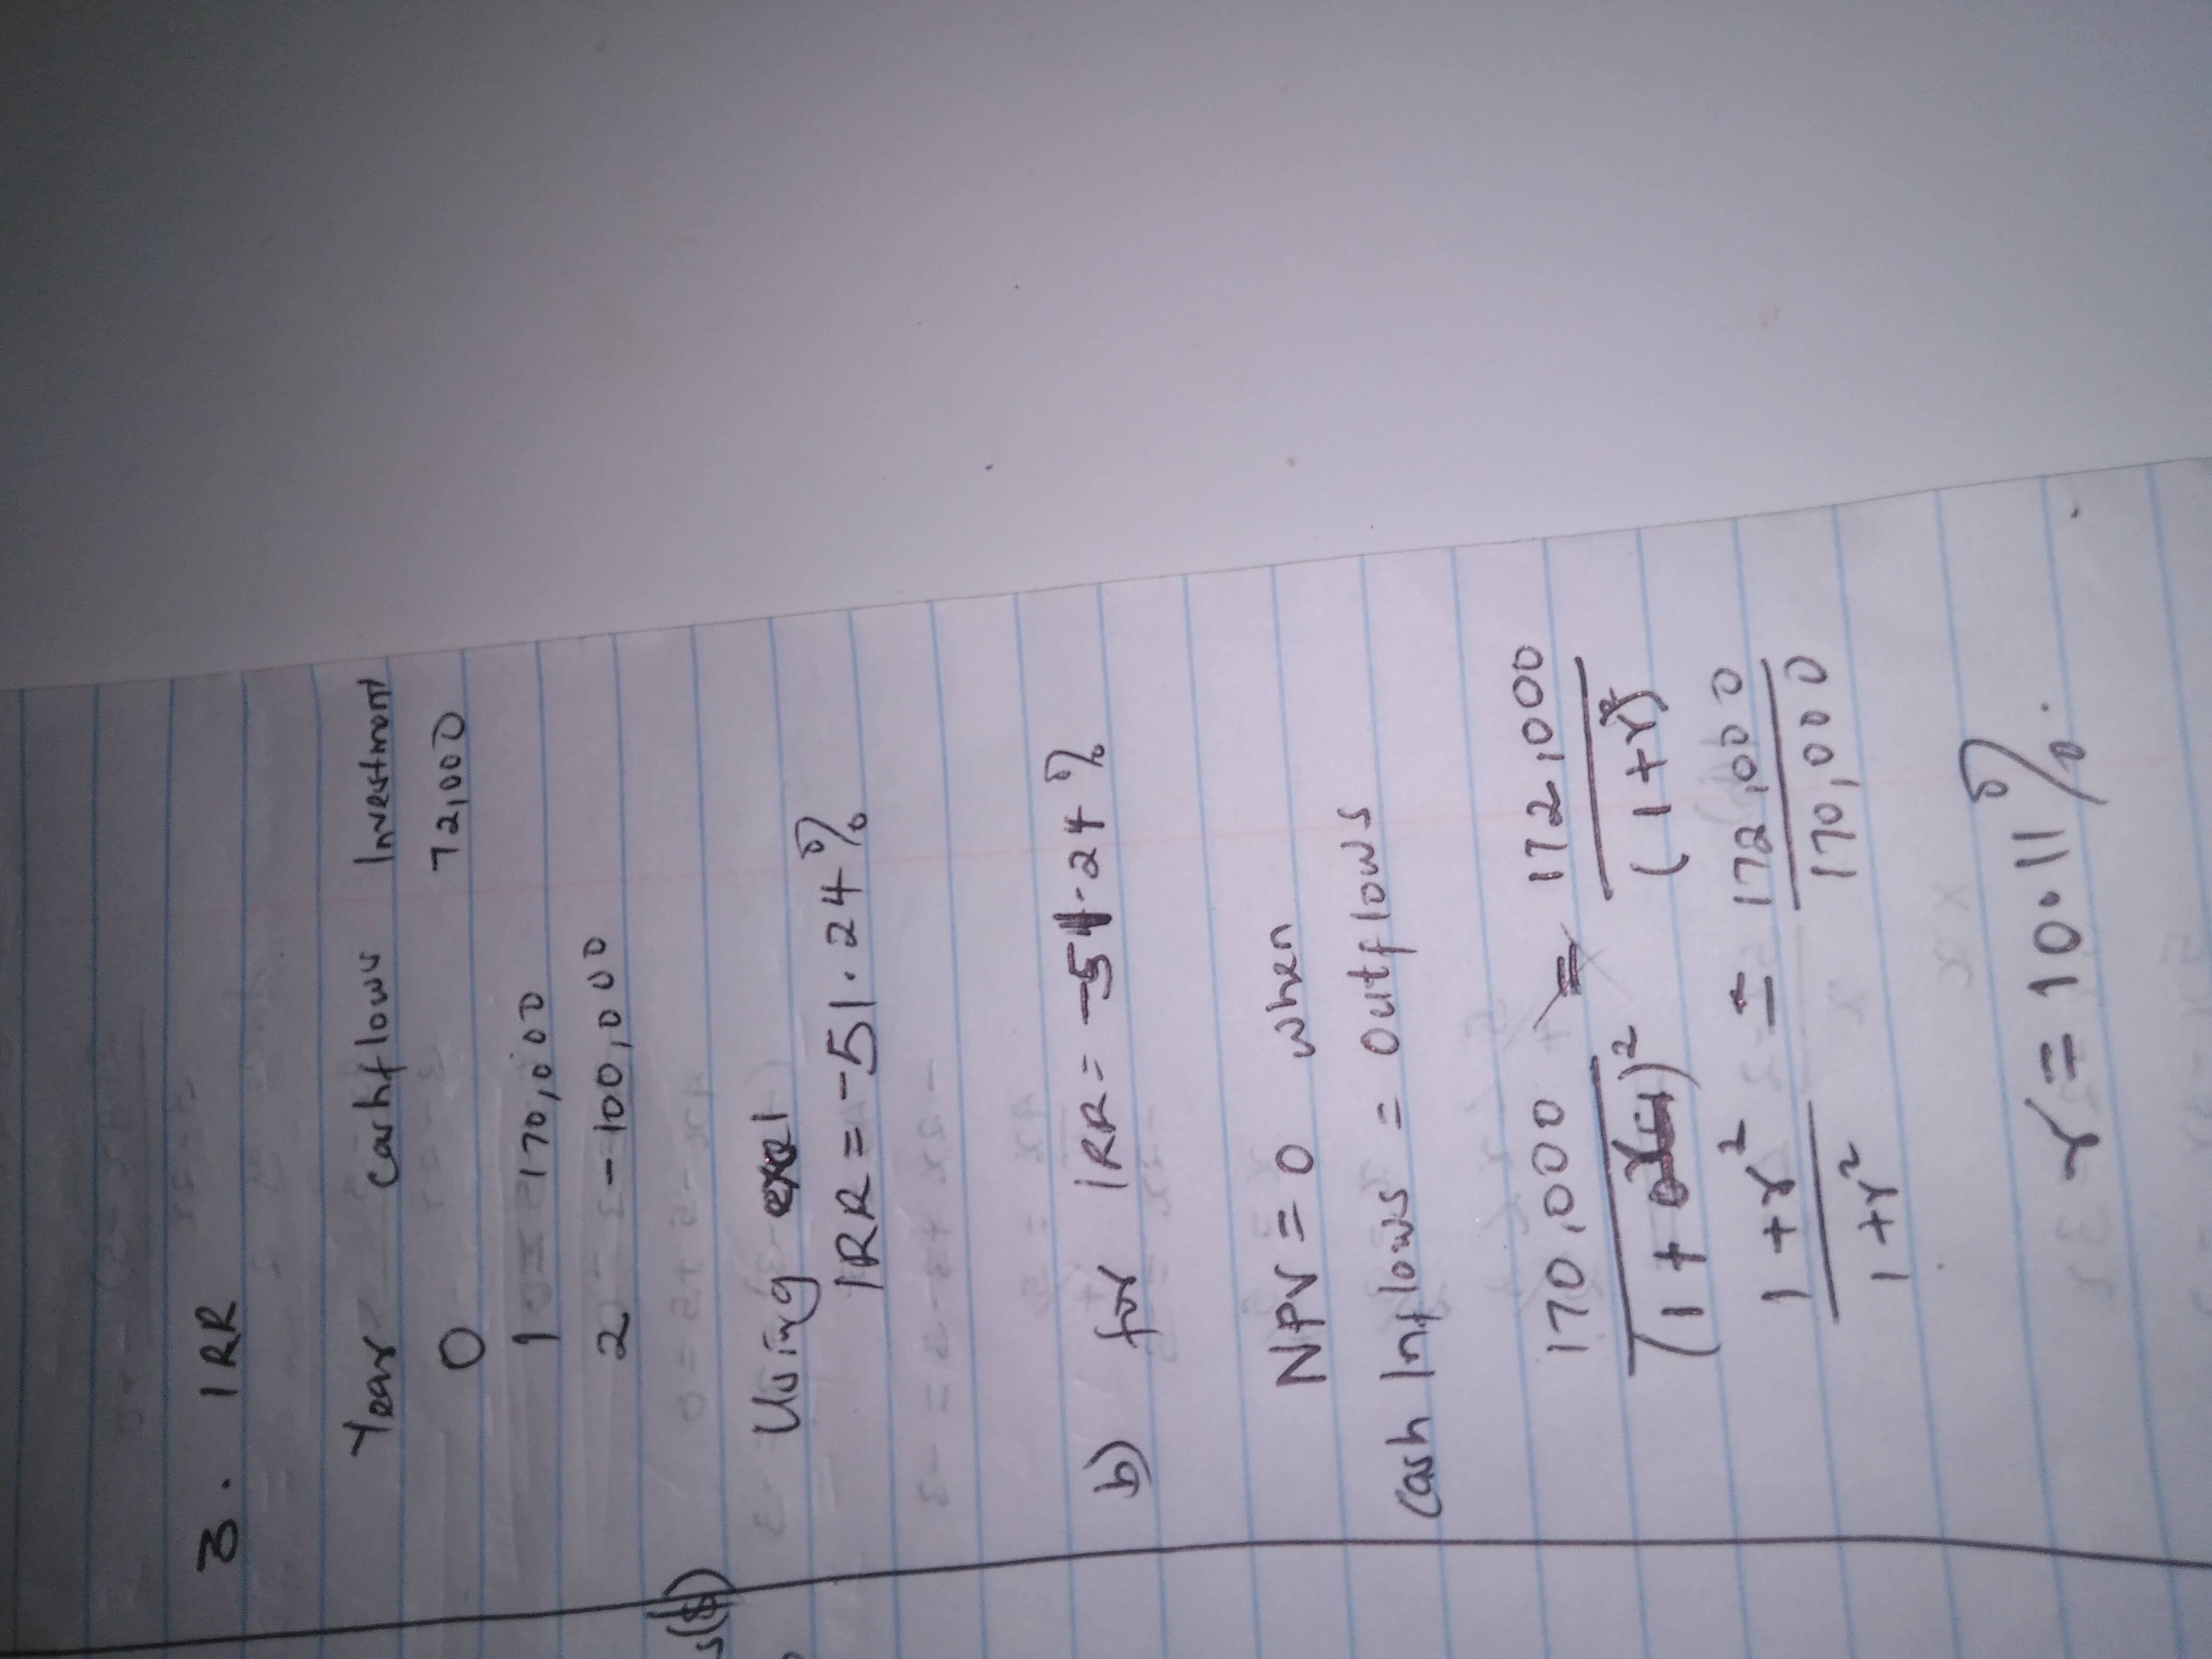 3. IRR
Year Cashflows Investment
0 72,000
1 170,000
2 -100,000
Using
IRR = -51.24%
b) for IRR = -51.24%
NPV = 0 when
Cash Inflows = Outflows
170,000 = 172,000
(1 + r)² (1+r)
1+r² = 172,000
1+r² 170,000
r = 10.11%.
s($)